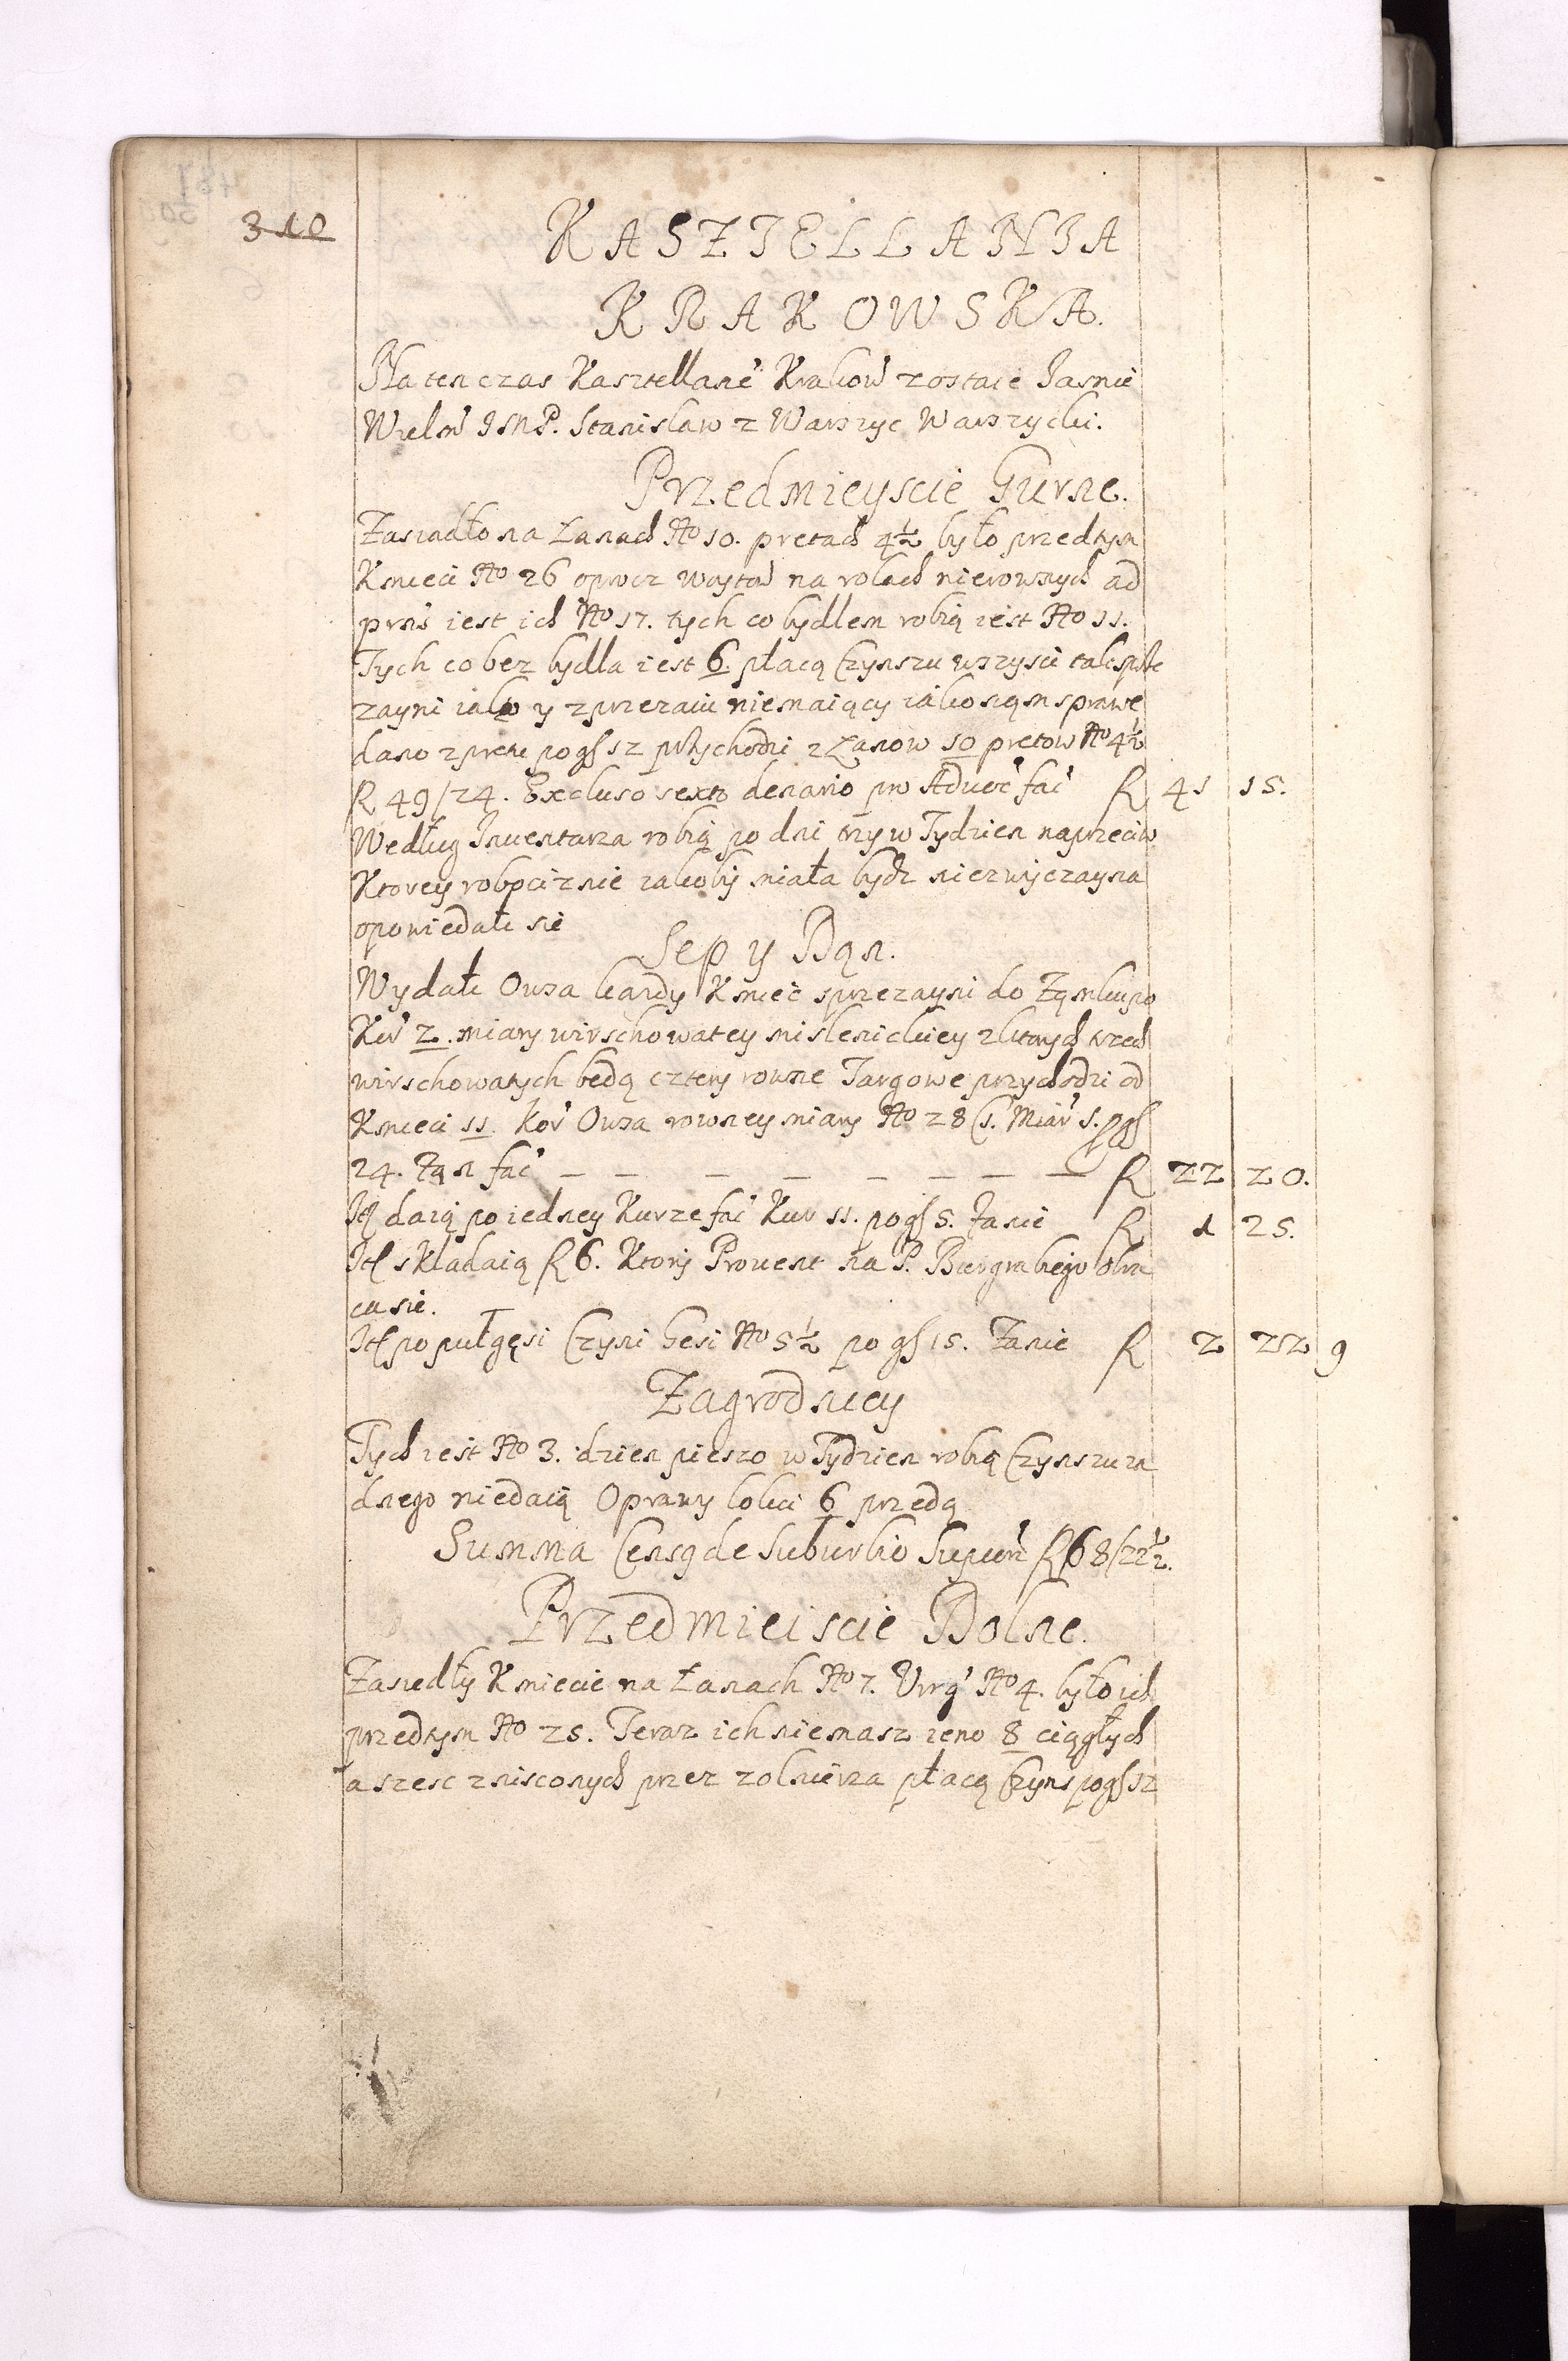 310
KASZTELLANIA
KRAKOWSKA.
Na ten czas Kasztellanē Krakow̓ zostaie Jasnie
Wielm̓ JMP. Stanislaw z Warszyc Warszycki.
Przedmieyscie Gurne.
Zasiadło na Łanach No 10. pretach 4½ było przedtym
Kmieci No 26 oprocz woytow na rolach nierownych ad
prns̓ iest ich No 17. tych co bydlem robią iest No 11.
Tych co bez bydla iest 6. płacą Czynszu wszysci tak sprze
zayni iako y zprzezaiu niemaiący iako nąm sprawe
dano z preta po gſ 12 przychodzi z Łanow 10 pretow No 4½
R 49/24. Excluso sexto denario pro Advoc̓ fac̓ R 41 15.
Według Inuentarza robią po dni trzy w Tydzien naprzeciw
Ktorey robociznie iakoby miała bydz niezwyczayna
opowiedali sie
Sep y Dąn.
Wydali Owsa kazdy Kmieć sprzezayni do Ząmku po
Kor̓ 2. miary wirschowatey mislenickiey z ktorych trzech
wirschowatych będą cztery rowne Targowe przychodzi od
Kmieci 11. Kor̓ Owsa rowney miary No 28 C. Miar̓ 1. po gſ
24. Zą n fac̓ R 22 20.
Itſ daią po iedney Kurze fac̓ Kur 11. po gſ 5. Zanie R 1 25.
Itſ składaią R 6. Ktory Prouent na P. Burgrabiego obra
ca sie.
Itſ po pułgęsi Czyni Gesi No 5½ po gſ 15. Zanie R 2 22 9
Zagrodnicy
Tych iest No 3. dzien pieszo w Tydzien robią Czynszu za
dnego niedaią Oprawy łokci 6 przedą
Summa Censq̃ de Suburbio Superr̓ R 68/22½.
Przedmieiscie Dolne.
Zasiedły Kmiecie na Łanach No 7. Virg̓ No 4. było ich
przedtym No 25. Teraz ich niemasz ieno 8 ciągłych
a szesc znisconych przez zolnierza płacą Czyns po gſ 12